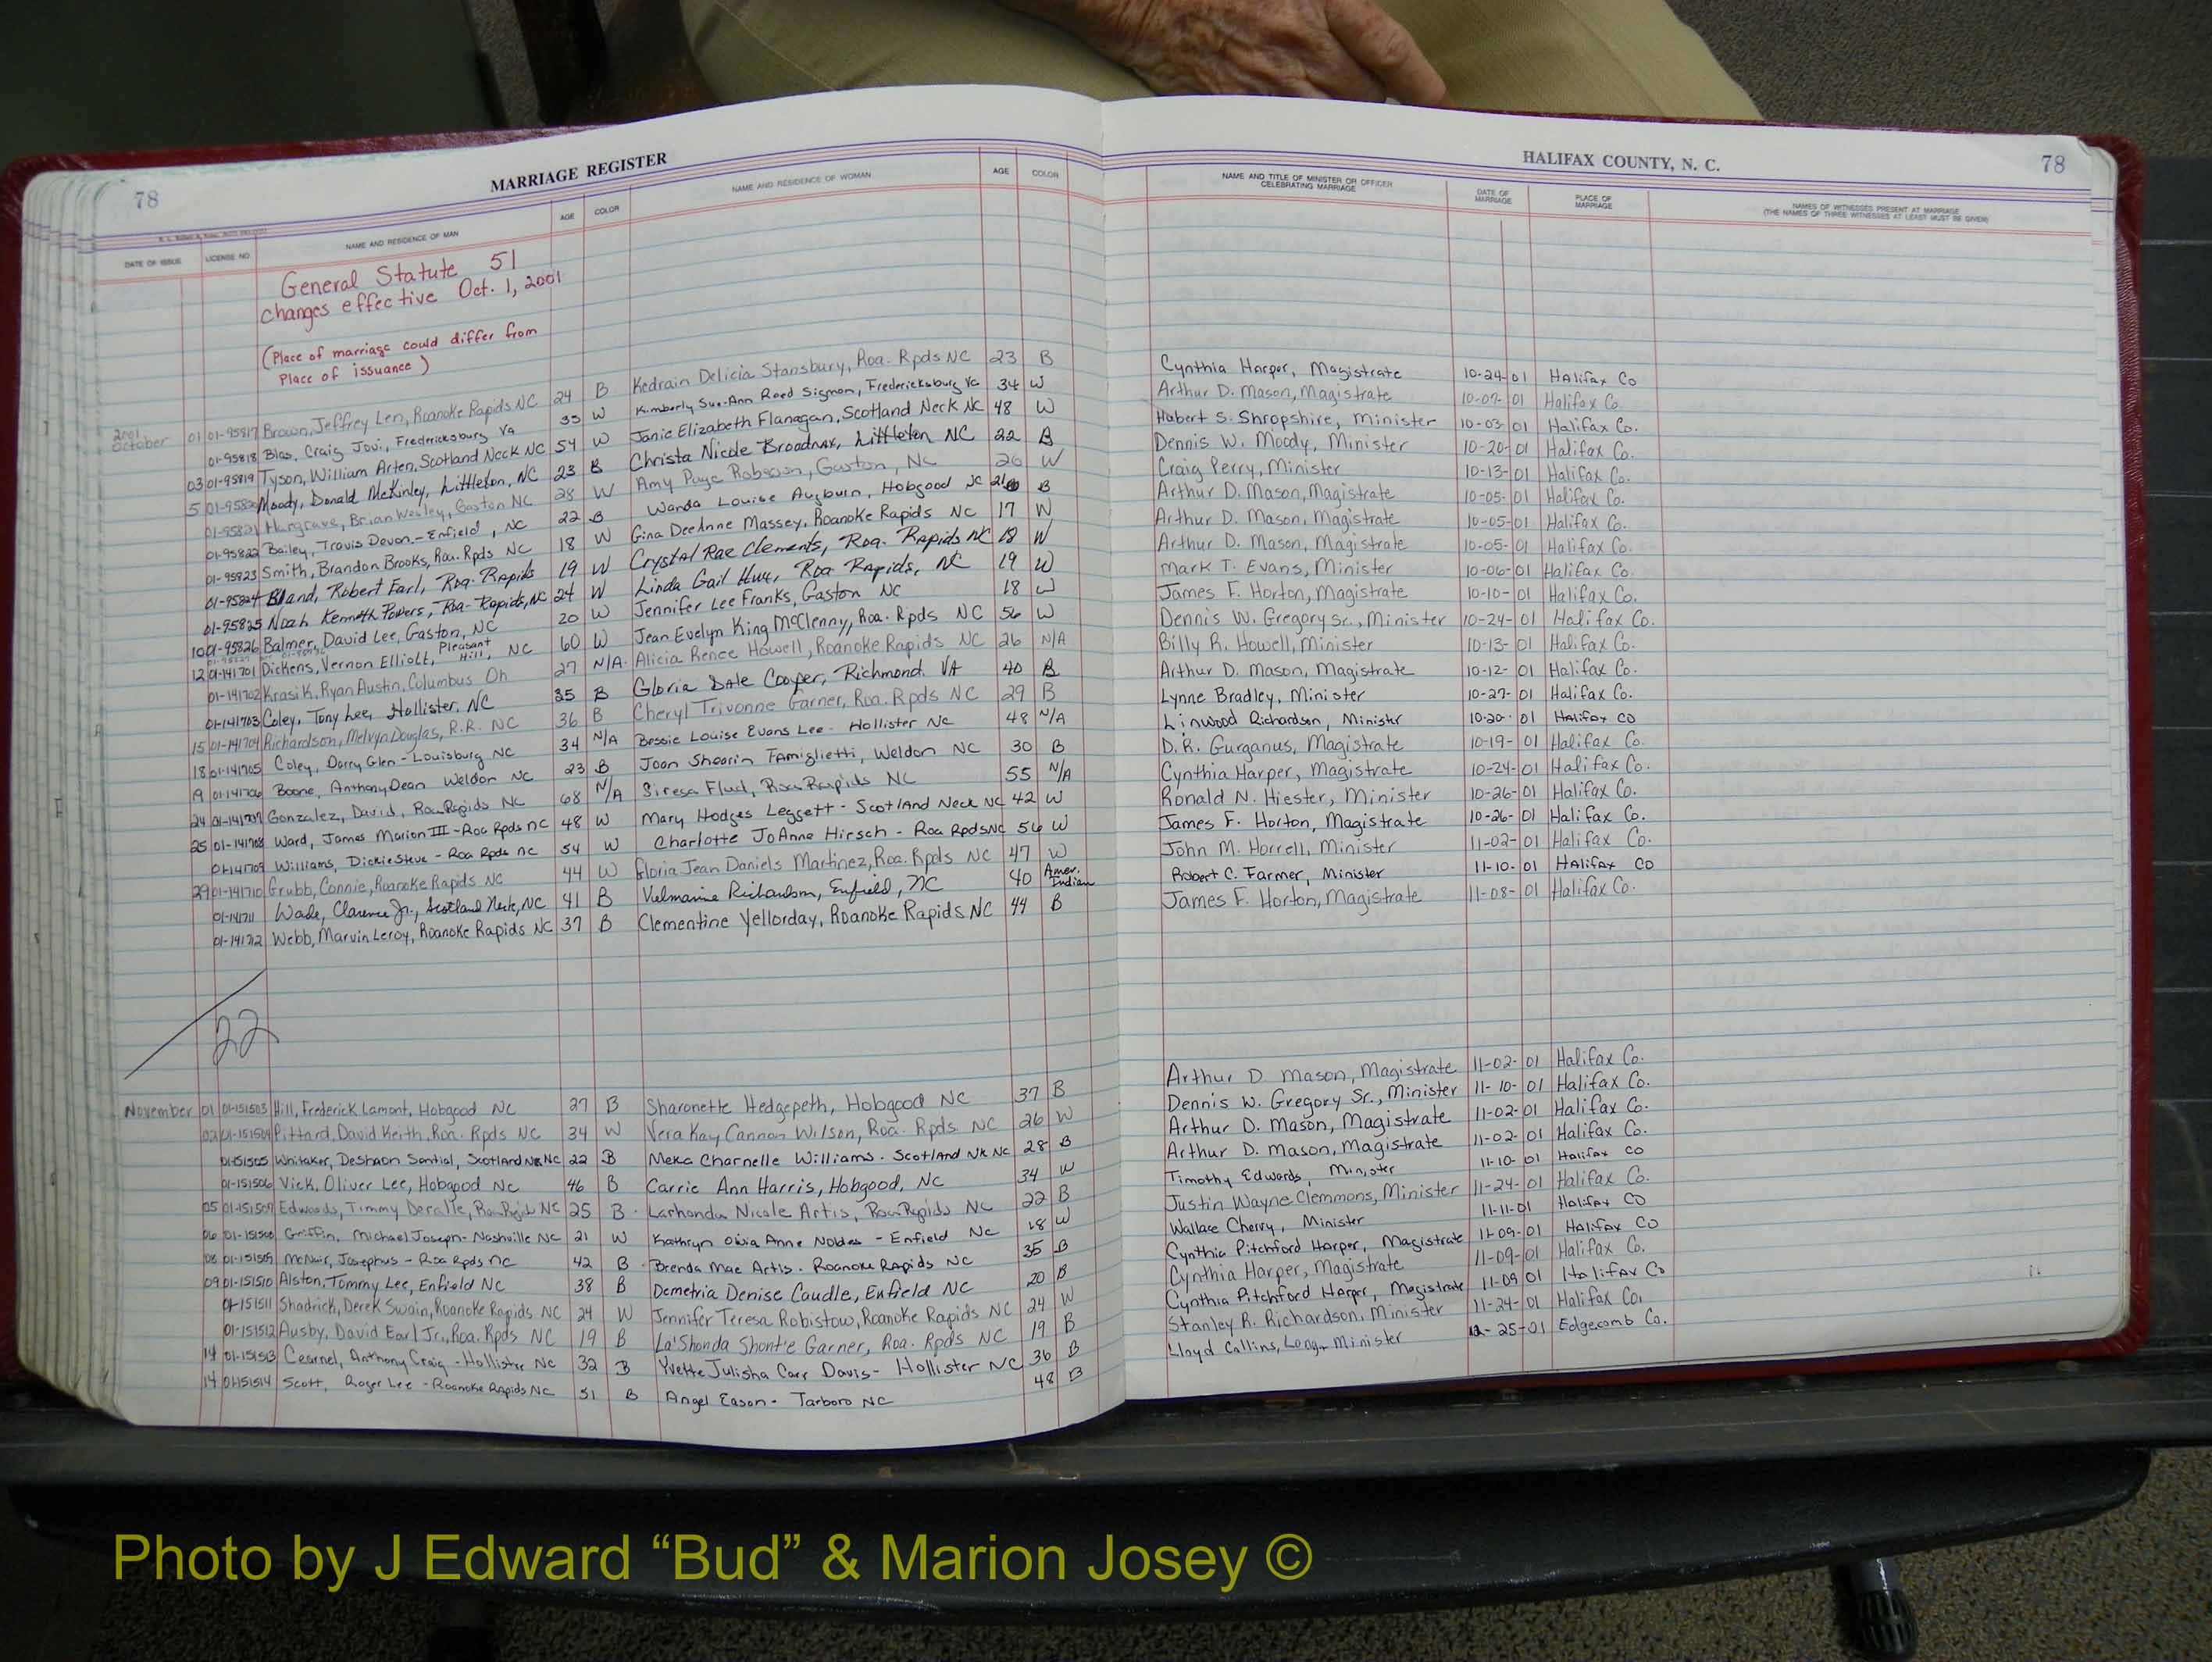 78 MARRIAGE REGISTER HALIFAX COUNTY, N. C. 78
DATE OF ISSUE LICENSE NO. NAME AND RESIDENCE OF MAN AGE COLOR NAME AND RESIDENCE OF WOMAN AGE COLOR NAME AND TITLE OF MINISTER OR OFFICER CELEBRATING MARRIAGE DATE OF MARRIAGE PLACE OF MARRIAGE NAMES OF WITNESSES PRESENT AT MARRIAGE (THE NAMES OF THREE WITNESSES AT LEAST MUST BE GIVEN)
General Statute 51
changes effective Oct. 1, 2001
(Place of marriage could differ from
Place of issuance)
2001
October 01 01-95817 Brown, Jeffrey Len, Roanoke Rapids NC 24 B Kedrain Delicia Stansbury, Roa. Rpds NC 23 B Cynthia Harper, Magistrate 10-24-01 Halifax Co
01-95818 Blas, Craig Jovi, Fredericksburg Va W Kimberly Sue-Ann Reed Sigmon, Fredericksburg Va 34 W Arthur D. Mason, Magistrate 10-07-01 Halifax Co.
03 01-95819 Tyson, William Arten, Scotland Neck NC 54 W Janie Elizabeth Flanagan, Scotland Neck NC 48 W Hubert S. Shropshire, Minister 10-03-01 Halifax Co.
5 01-95820 Moody, Donald McKinley, Littleton, NC 23 B Christa Nicole Broadnax, Littleton NC 22 B Dennis W. Moody, Minister 10-20-01 Halifax Co.
01-95821 Hargrave, Brian Wesley, Gaston NC 28 W Amy Page Robeson, Gaston, NC 26 W Craig Perry, Minister 10-13-01 Halifax Co.
01-95822 Bailey, Travis Devon - Enfield, NC 22 B Wanda Louise Augburn, Hobgood NC 21 B Arthur D. Mason, Magistrate 10-05-01 Halifax Co.
01-95823 Smith, Brandon Brooks, Roa. Rpds NC 18 W Gina DeeAnne Massey, Roanoke Rapids NC 17 W Arthur D. Mason, Magistrate 10-05-01 Halifax Co.
01-95824 Bland, Robert Earl, Roa. Rapids 19 W Crystal Rae Clements, Roa. Rapids NC 18 W Arthur D. Mason, Magistrate 10-05-01 Halifax Co.
01-95825 Noah Kenneth Powers, Roa-Rapids, NC 24 W Linda Gail Hux, Roa Rapids, NC 19 W Mark T. Evans, Minister 10-06-01 Halifax Co.
10 01-95826 Balmer, David Lee, Gaston, NC 20 W Jennifer Lee Franks, Gaston NC 18 W James F. Horton, Magistrate 10-10-01 Halifax Co.
12 01-141701 Dickens, Vernon Elliott, Pleasant Hill, NC 60 W Jean Evelyn King McClenny, Roa. Rpds NC 56 W Dennis W. Gregory Sr., Minister 10-24-01 Halifax Co.
01-141702 Krasik, Ryan Austin, Columbus Oh 27 N/A Alicia Renee Howell, Roanoke Rapids NC 26 N/A Billy R. Howell, Minister 10-13-01 Halifax Co.
01-141703 Coley, Tony Lee, Hollister, NC 35 B Gloria Dale Cooper, Richmond, VA 40 B Arthur D. Mason, Magistrate 10-12-01 Halifax Co.
15 01-141704 Richardson, Melvyn Douglas, R.R. NC 36 B Cheryl Trivonne Garner, Roa. Rpds NC 29 B Lynne Bradley, Minister 10-27-01 Halifax Co.
18 01-141705 Coley, Darry Glen - Louisburg NC 34 N/A Bessie Louise Evans Lee - Hollister NC 48 N/A Linwood Richardson, Minister 10-20-01 Halifax Co
19 01-141706 Boone, Anthony Dean Weldon NC 23 B Joan Shearin Famiglietti, Weldon NC 30 B D. R. Gurganus, Magistrate 10-19-01 Halifax Co.
24 01-141707 Gonzalez, David, Roa Rapids NC 68 N/A Siresa Flud, Roa Rapids NC 55 N/A Cynthia Harper, Magistrate 10-24-01 Halifax Co.
25 01-141708 Ward, James Marion III - Roa Rpds NC 48 W Mary Hodges Leggett - Scotland Neck NC 42 W Ronald N. Hiester, Minister 10-26-01 Halifax Co.
01-141709 Williams, Dickie Steve - Roa Rpds NC 54 W Charlotte JoAnne Hirsch - Roa Rpds NC 56 W James F. Horton, Magistrate 10-26-01 Halifax Co.
29 01-141710 Grubb, Connie, Roanoke Rapids NC 44 W Gloria Jean Daniels Martinez, Roa. Rpds NC 47 W John M. Horrell, Minister 11-02-01 Halifax Co.
01-141711 Wade, Clarence Jr., Scotland Neck, NC 41 B Velmarine Richardson, Enfield, NC 40 Amer. Indian Robert C. Farmer, Minister 11-10-01 Halifax Co
01-141712 Webb, Marvin Leroy, Roanoke Rapids NC 37 B Clementine Yellorday, Roanoke Rapids NC 44 B James F. Horton, Magistrate 11-08-01 Halifax Co.
22
November 01 01-151503 Hill, Frederick Lamont, Hobgood NC 27 B Sharonette Hedgepeth, Hobgood NC 37 B Arthur D. Mason, Magistrate 11-02-01 Halifax Co.
02 01-151504 Pittard, David Keith, Roa. Rpds NC 34 W Vera Kay Cannon Wilson, Roa. Rpds NC 26 W Dennis W. Gregory Sr., Minister 11-10-01 Halifax Co.
01-151505 Whitaker, DeShaon Sential, Scotland Nk NC 22 B Meka Charnelle Williams - Scotland Nk NC 28 B Arthur D. Mason, Magistrate 11-02-01 Halifax Co.
01-151506 Vick, Oliver Lee, Hobgood NC 46 B Carrie Ann Harris, Hobgood, NC 34 W Arthur D. Mason, Magistrate 11-02-01 Halifax Co.
05 01-151507 Edwards, Timmy Deralle, Roa Rapids NC 25 B Larhonda Nicole Artis, Roa Rapids NC 22 B Timothy Edwards, Minister 11-10-01 Halifax Co
06 01-151508 Griffin, Michael Joseph - Nashville NC 21 W Kathryn Olivia Anne Nobles - Enfield NC 18 W Justin Wayne Clemmons, Minister 11-24-01 Halifax Co.
08 01-151509 McNair, Josephus - Roa Rpds NC 42 B Brenda Mae Artis - Roanoke Rapids NC 35 B Wallace Cherry, Minister 11-11-01 Halifax Co
09 01-151510 Alston, Tommy Lee, Enfield NC 38 B Demetria Denise Caudle, Enfield NC 20 B Cynthia Pitchford Harper, Magistrate 11-09-01 Halifax Co
01-151511 Shadrick, Derek Swain, Roanoke Rapids NC 24 W Jennifer Teresa Robistow, Roanoke Rapids NC 24 W Cynthia Harper, Magistrate 11-09-01 Halifax Co.
01-151512 Ausby, David Earl Jr., Roa. Rpds NC 19 B La'Shonda Shont'e Garner, Roa. Rpds NC 19 B Cynthia Pitchford Harper, Magistrate 11-09 01 Halifax Co
14 01-151513 Cearnel, Anthony Craig - Hollister NC 32 B Yvette Julisha Carr Davis - Hollister NC 36 B Stanley R. Richardson, Minister 11-24-01 Halifax Co.
14 01-151514 Scott, Roger Lee - Roanoke Rapids NC 51 B Angel Eason - Tarboro NC 48 B Lloyd Collins, Minister 12-25-01 Edgecomb Co.
Photo by J Edward “Bud” & Marion Josey ©